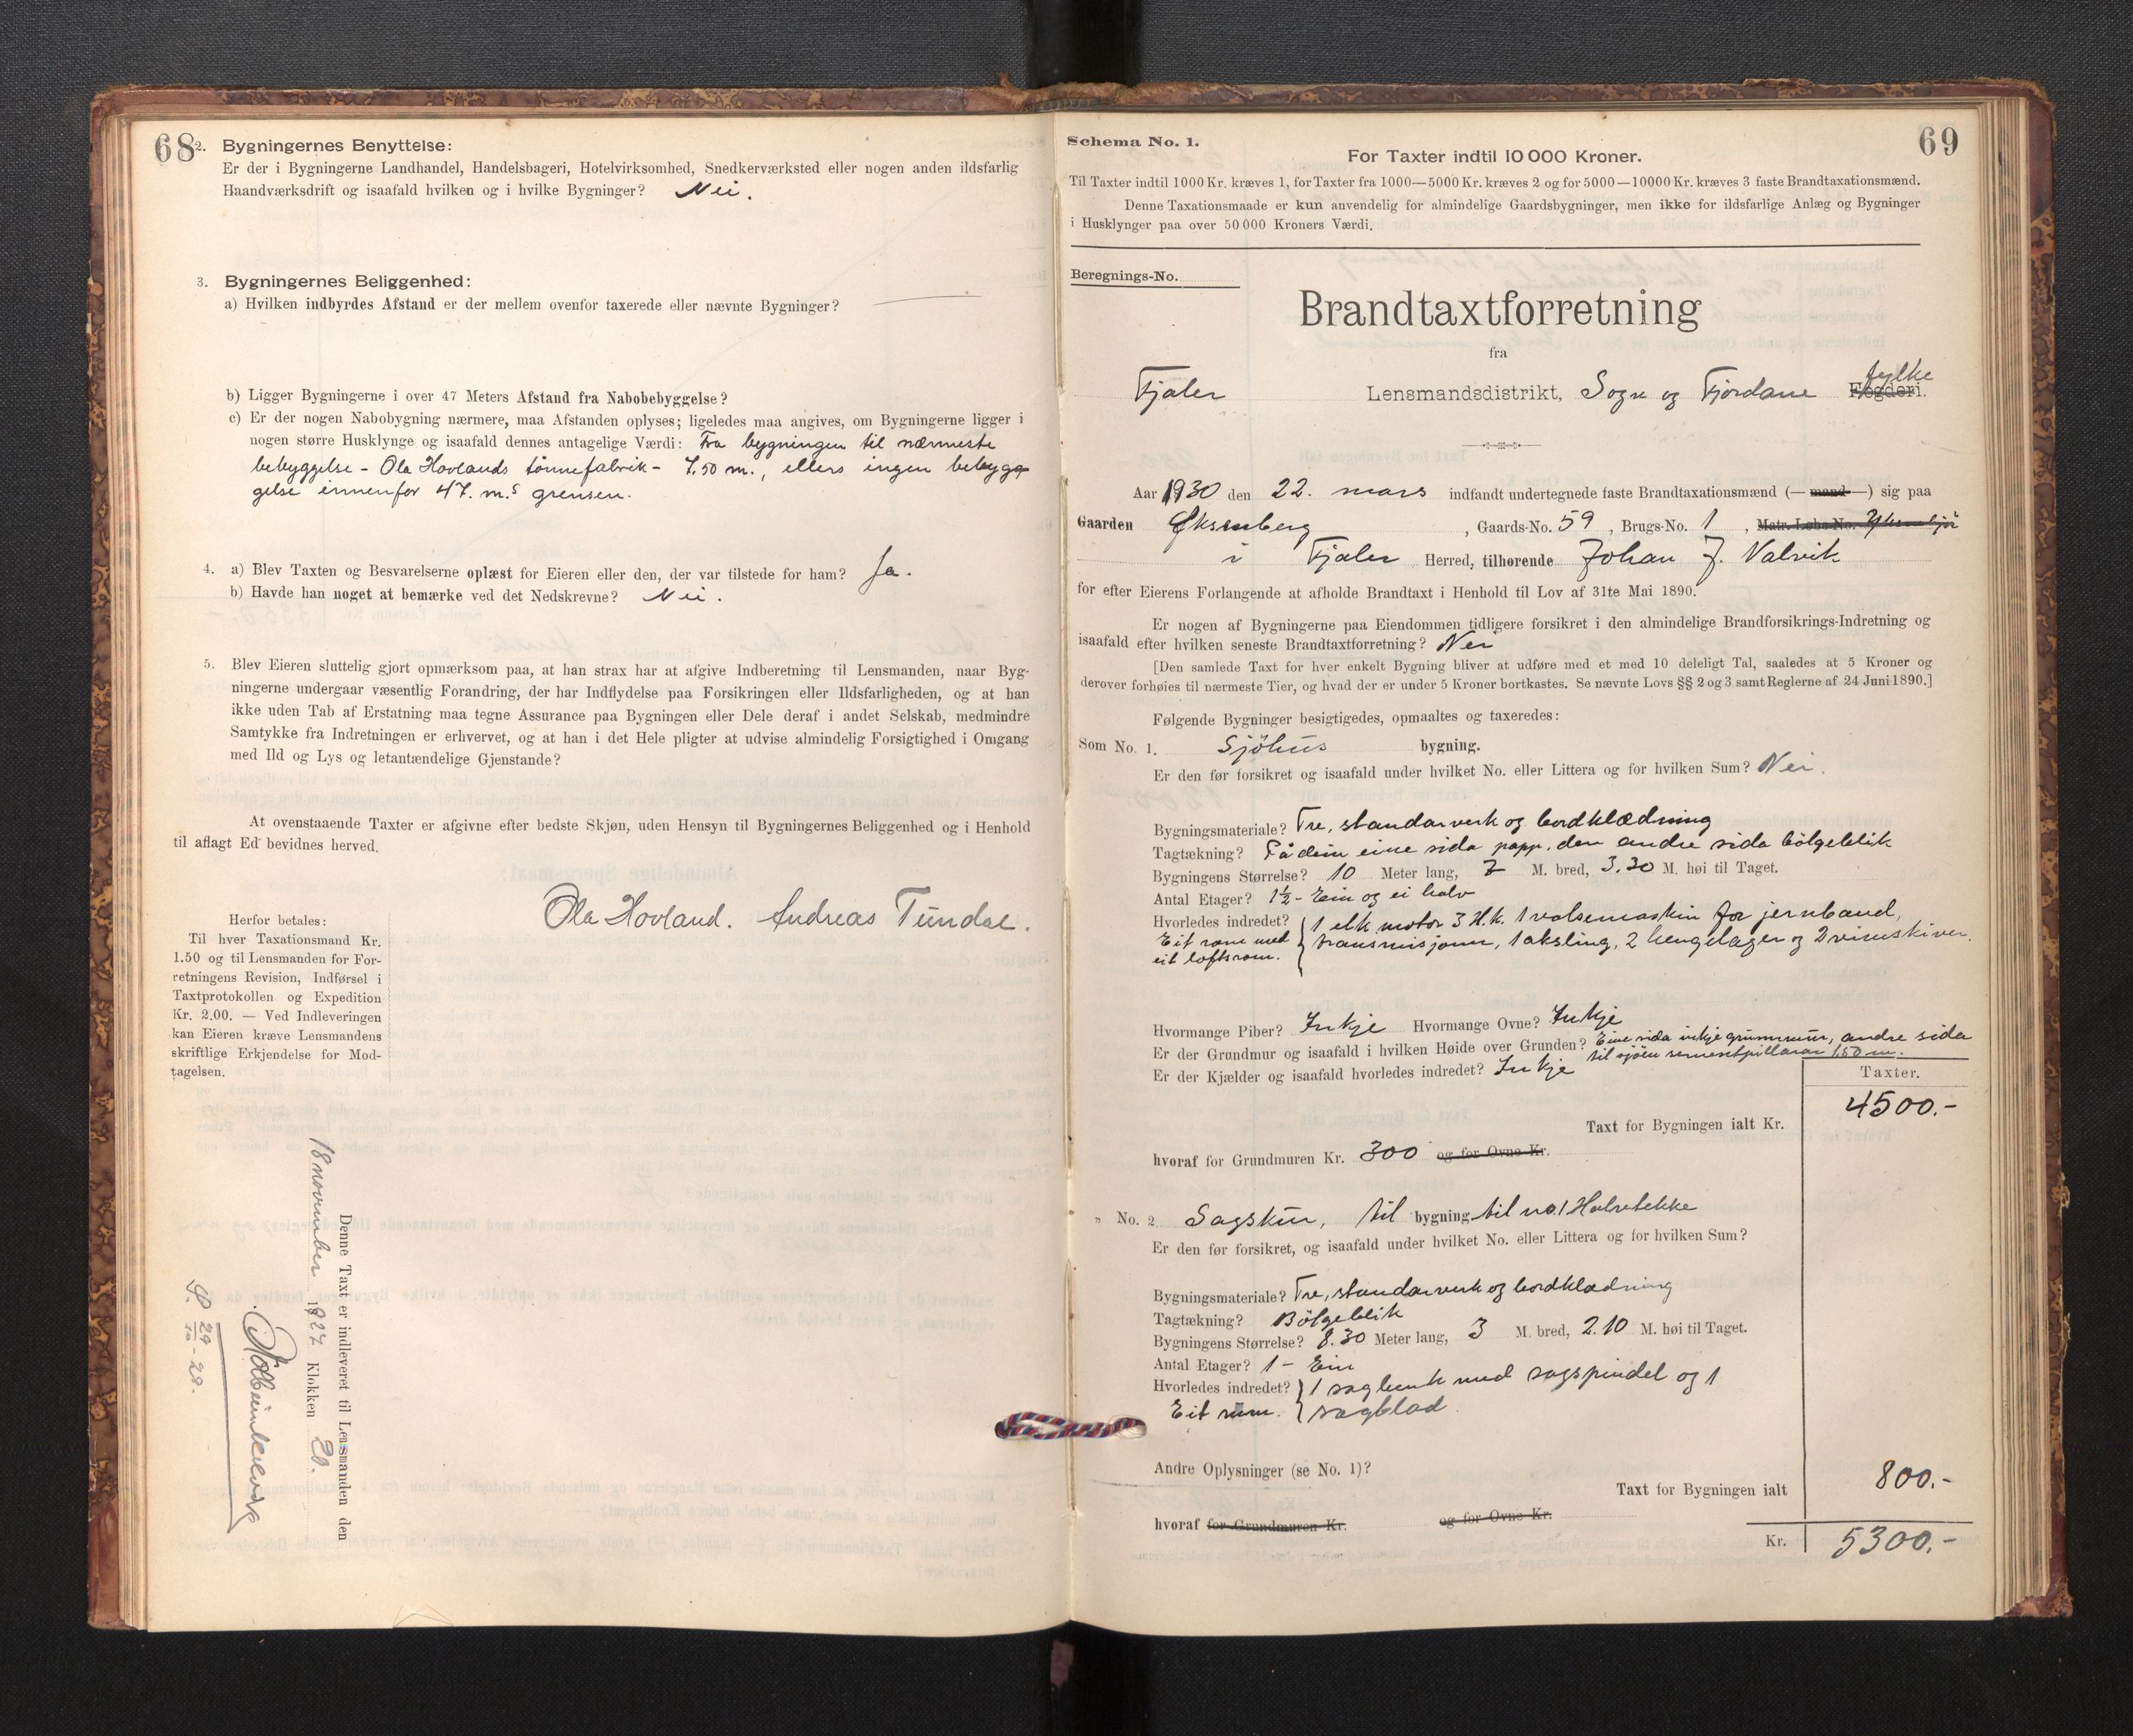 68
2. Bygningernes Benyttelse:
Er der i Bygningerne Landhandel, Handelsbageri, Hotelvirksomhed, Snedkerværksted eller nogen anden ildsfarlig
Haandværksdrift og isaafald hvilken og i hvilke Bygninger? Nei.
3. Bygningernes Beliggenhed:
a) Hvilken indbyrdes Afstand er der mellem ovenfor taxerede eller nævnte Bygninger?
b) Ligger Bygningerne i over 47 Meters Afstand fra Nabobebyggelse?
c) Er der nogen Nabobygning nærmere, maa Afstanden oplyses; ligeledes maa angives, om Bygningerne ligger i
nogen større Husklynge og isaafald dennes antagelige Værdi: Fra bygningen til nærmeste
bebyggelse - Ola Hovlands tönnefabrik - 7.50 m., ellers ingen bebygg
gelse innenfor 47. m.s grensen.
4. a) Blev Taxten og Besvarelserne oplæst for Eieren eller den, der var tilstede for ham? Ja.
b) Havde han noget at bemærke ved det Nedskrevne? Nei.
5. Blev Eieren sluttelig gjort opmærksom paa, at han strax har at afgive Indberetning til Lensmanden, naar Byg-
ningerne undergaar væsentlig Forandring, der har Indflydelse paa Forsikringen eller Ildsfarligheden, og at han
ikke uden Tab af Erstatning maa tegne Assurance paa Bygningen eller Dele deraf i andet Selskab, medmindre
Samtykke fra Indretningen er erhvervet, og at han i det Hele pligter at udvise almindelig Forsigtighed i Omgang
med Ild og Lys og letantændelige Gjenstande?
At ovenstaaende Taxter er afgivne efter bedste Skjøn, uden Hensyn til Bygningernes Beliggenhed og i Henhold
til aflagt Ed bevidnes herved.
Ola Hovland. Andreas Tundal.
Herfor betales:
Til hver Taxationsmand Kr.
1.50 og til Lensmanden for For-
retningens Revision, Indførsel i
Taxtprotokollen og Expedition
Kr. 2.00. — Ved Indleveringen
kan Eieren kræve Lensmandens
skriftlige Erkjendelse for Mod-
tagelsen.
Denne Taxt er indleveret til Lensmanden den
18 november 1927 Klokken 20.
29
10 - 29.
69
Schema No. 1.
For Taxter indtil 10 000 Kroner.
Til Taxter indtil 1000 Kr. kræves 1, for Taxter fra 1000—5000 Kr. kræves 2 og for 5000—10000 Kr. kræves 3 faste Brandtaxationsmænd.
Denne Taxationsmaade er kun anvendelig for almindelige Gaardsbygninger, men ikke for ildsfarlige Anlæg og Bygninger
i Husklynger paa over 50 000 Kroners Værdi.
Beregnings-No.
Brandtaxtforretning
fra
Fjaler Lensmandsdistrikt, Sogn og Fjordane Fogderi. fylke
Aar 1930 den 22. mars indfandt undertegnede faste Brandtaxationsmænd (— mand —) sig paa
Gaarden Øksenberg, Gaards-No. 59, Brugs-No. 1, Matr. Løbe-No.
i Fjaler Herred, tilhørende Johan J. Valvik
for efter Eierens Forlangende at afholde Brandtaxt i Henhold til Lov af 31te Mai 1890.
Er nogen af Bygningerne paa Eiendommen tidligere forsikret i den almindelige Brandforsikrings-Indretning og
isaafald efter hvilken seneste Brandtaxtforretning? Nei
[Den samlede Taxt for hver enkelt Bygning bliver at udføre med et med 10 deleligt Tal, saaledes at 5 Kroner og
derover forhøies til nærmeste Tier, og hvad der er under 5 Kroner bortkastes. Se nævnte Lovs §§ 2 og 3 samt Reglerne af 24 Juni 1890.]
Følgende Bygninger besigtigedes, opmaaltes og taxeredes:
Som No. 1. Sjöhus bygning.
Er den før forsikret og isaafald under hvilket No. eller Littera og for hvilken Sum? Nei.
Bygningsmateriale? Tre, standarverk og bordklædning
Tagtækning? På dein eine sida papp, den andre sida bölgeblik
Bygningens Størrelse? 10 Meter lang, 7 M. bred, 3.30 M. høi til Taget.
Antal Etager? 1½ - Ein og ei halv
Hvorledes indredet? 1 elk. motor 3 H.k. 1 valsemaskin for jernband,
Eit rom med transmisjonn, 1 aksling, 2 hengelager og 2 reimskiver.
eit loftsrom.
Hvormange Piber? Inkje Hvormange Ovne? Inkje
Er der Grundmur og isaafald i hvilken Høide over Grunden? Eine sida inkje grunnmur, andre sida
til sjöen sementpillarar 1.50 m.
Er der Kjælder og isaafald hvorledes indredet? Inkje
Taxter.
Taxt for Bygningen ialt Kr. 4500.-
hvoraf for Grundmuren Kr. 300 og for Ovne Kr.
" No. 2. Sagskur, til bygning til no. 1 Halvtekke
Er den før forsikret, og isaafald under hvilket No. eller Littera og for hvilken Sum?
Bygningsmateriale? Tre, standarverk og bordklædning
Tagtækning? Bölgeblik
Bygningens Størrelse? 8.30 Meter lang, 3 M. bred, 2.10 M. høi til Taget.
Antal Etager? 1 - Ein
Hvorledes indredet? 1 sagbenk med sagspindel og 1
Eit rum. sagblad.
Andre Oplysninger (se No. 1)?
Taxt for Bygningen ialt 800.-
hvoraf for Grundmuren Kr. og for Ovne Kr.
Kr. 5300.-